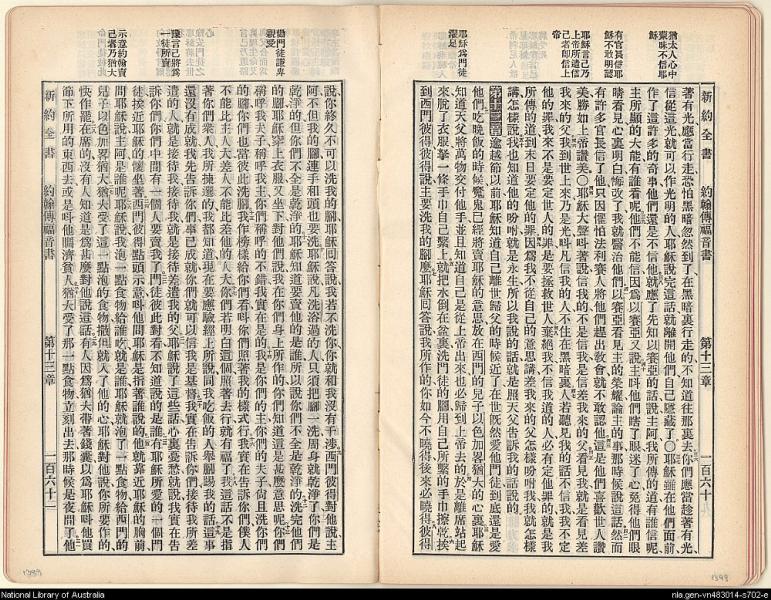 猶太人心中
蒙昧不信耶
穌
有官員信耶
穌不敢明認
耶穌言己乃
上帝所遣信
己者卽信上
帝
耶穌爲門徒
濯足
新約全書 約翰傳福音書 第十三章 一百六十
著有光、應當行走恐怕黑暗忽然到了、在黑暗裏行走的不知道往那裏去你們應當趁著有光、
信從這光就可以作光明的人耶穌說完這話就離開他們自己隱藏了〇耶穌雖在他們面前
作了這許多的奇事他們還是不信他就應了先知以賽亞的話說主阿我所傳的道有誰信呢、
主所顯的大能有誰看見呢他們不能信因爲以賽亞又說主叫他們瞎了眼迷了心免得他們眼
睛看見心裏明白悔改了我就醫治他們以賽亞看見主的榮耀論主的事那時候說這話然而
有許多官長信了他只因懼怕法利賽人將他們趕出敎會就不敢認他這是他們喜歡世人讚
美勝如上帝讚美〇耶穌大聲呌著說信我的不是信我是信差我來的父看見我就是看見差
我來的父我到世上來乃是光叫凡信我的人不住在黑暗裏人若聽見我的話不信我我不定
他的罪我來不是要定世人的罪是要拯救世人棄絕我不信我道的人必有定他罪的就是我
所傳的道到末日要定他的罪因爲我不從自己的意思講差我來的父怎樣吩咐我我就怎樣
講怎樣說我也知道他的吩咐就是永生所以我說的話就是照天父告訴我的話說的
第十三章 逾越節以前耶穌知道自己離世歸父的時候近了在世旣然愛他門徒到底還是愛
他們吃晚飯的時候魔鬼已經將賣耶穌的意思放在西門的兒子以色加畧猶大的心裏耶穌
知道天父將萬物交付他手並且知道自己是從上帝出來也必歸到上帝去的於是離席站起
來脫了衣服拏一條手巾自己繫上就把水倒在盆裏洗門徒的腳用自己所繫的手巾擦乾挨
到西門彼得彼得說主要洗我的腳麼耶穌回答說我所作的你如今不曉得後來必曉得彼得
勸門徒謙卑
親愛
豫言己將爲
一徒所賣
示意約翰賣
己者乃猶大
說、你終久不可以洗我的腳、耶穌回答說我若不洗你、你就和我沒有干涉西門彼得對他說主
阿不但我的腳連手和頭也要洗耶穌說凡洗浴過的人只須把腳一洗周身就乾淨了你們是
乾淨的但你們不全是乾淨的耶穌知道要賣他的是誰所以說你們不全是乾淨的洗完他們
的腳耶穌穿上衣服又坐下對他們說我在你們身上所作的你們知道這是甚麼意思呢你們
稱呼我夫子稱呼我主你們稱呼的不錯我實在是的我是你們的主你們的夫子尙且洗你們
的腳你們也當彼此洗腳我作榜樣給你們看叫你們照著我的樣式行我實在告訴你們僕人
不能比主人大差人不能比差他的人大你們若明白這個照著去行就有福了我這話不是指
著你們衆人我所揀選的我都知道現在要應驗經上所說同我吃飯的人舉腳踢我的話這事
還沒有成就我先告訴你們事已成就你們就可以信我是基督我實在告訴你們接待我所差
遣的人就是接待我接待我就是接待差遣我的父耶穌說了這些話心裏憂愁就說我實在告
訴你們你們中間有一個人要賣我了門徒彼此對看不知道說的是誰有耶穌所愛的一個門
徒挨近耶穌的懷坐著西門彼得點頭示意叫他問耶穌是指著誰說的他就靠近耶穌的胸前
問耶穌說主阿是誰呢耶穌說我泡一點食物給誰吃就是誰耶穌就泡了一點食物給西門的
兒子以色加畧猶大猶大受了這一點泡的食物撒但就入了他的心耶穌對他說你所要作的
快作罷在席的沒有人知道是爲甚麼對他說這話有人因爲猶大帶著錢囊以爲耶穌叫他買
節下所用的東西去或是叫他賙濟貧人猶大受了那一點食物立刻出去那時候是夜間了他
新約全書 約翰傳福音書 第十三章 一百六十一
National Library of Australia
nla.gen-vn483014-s702-e